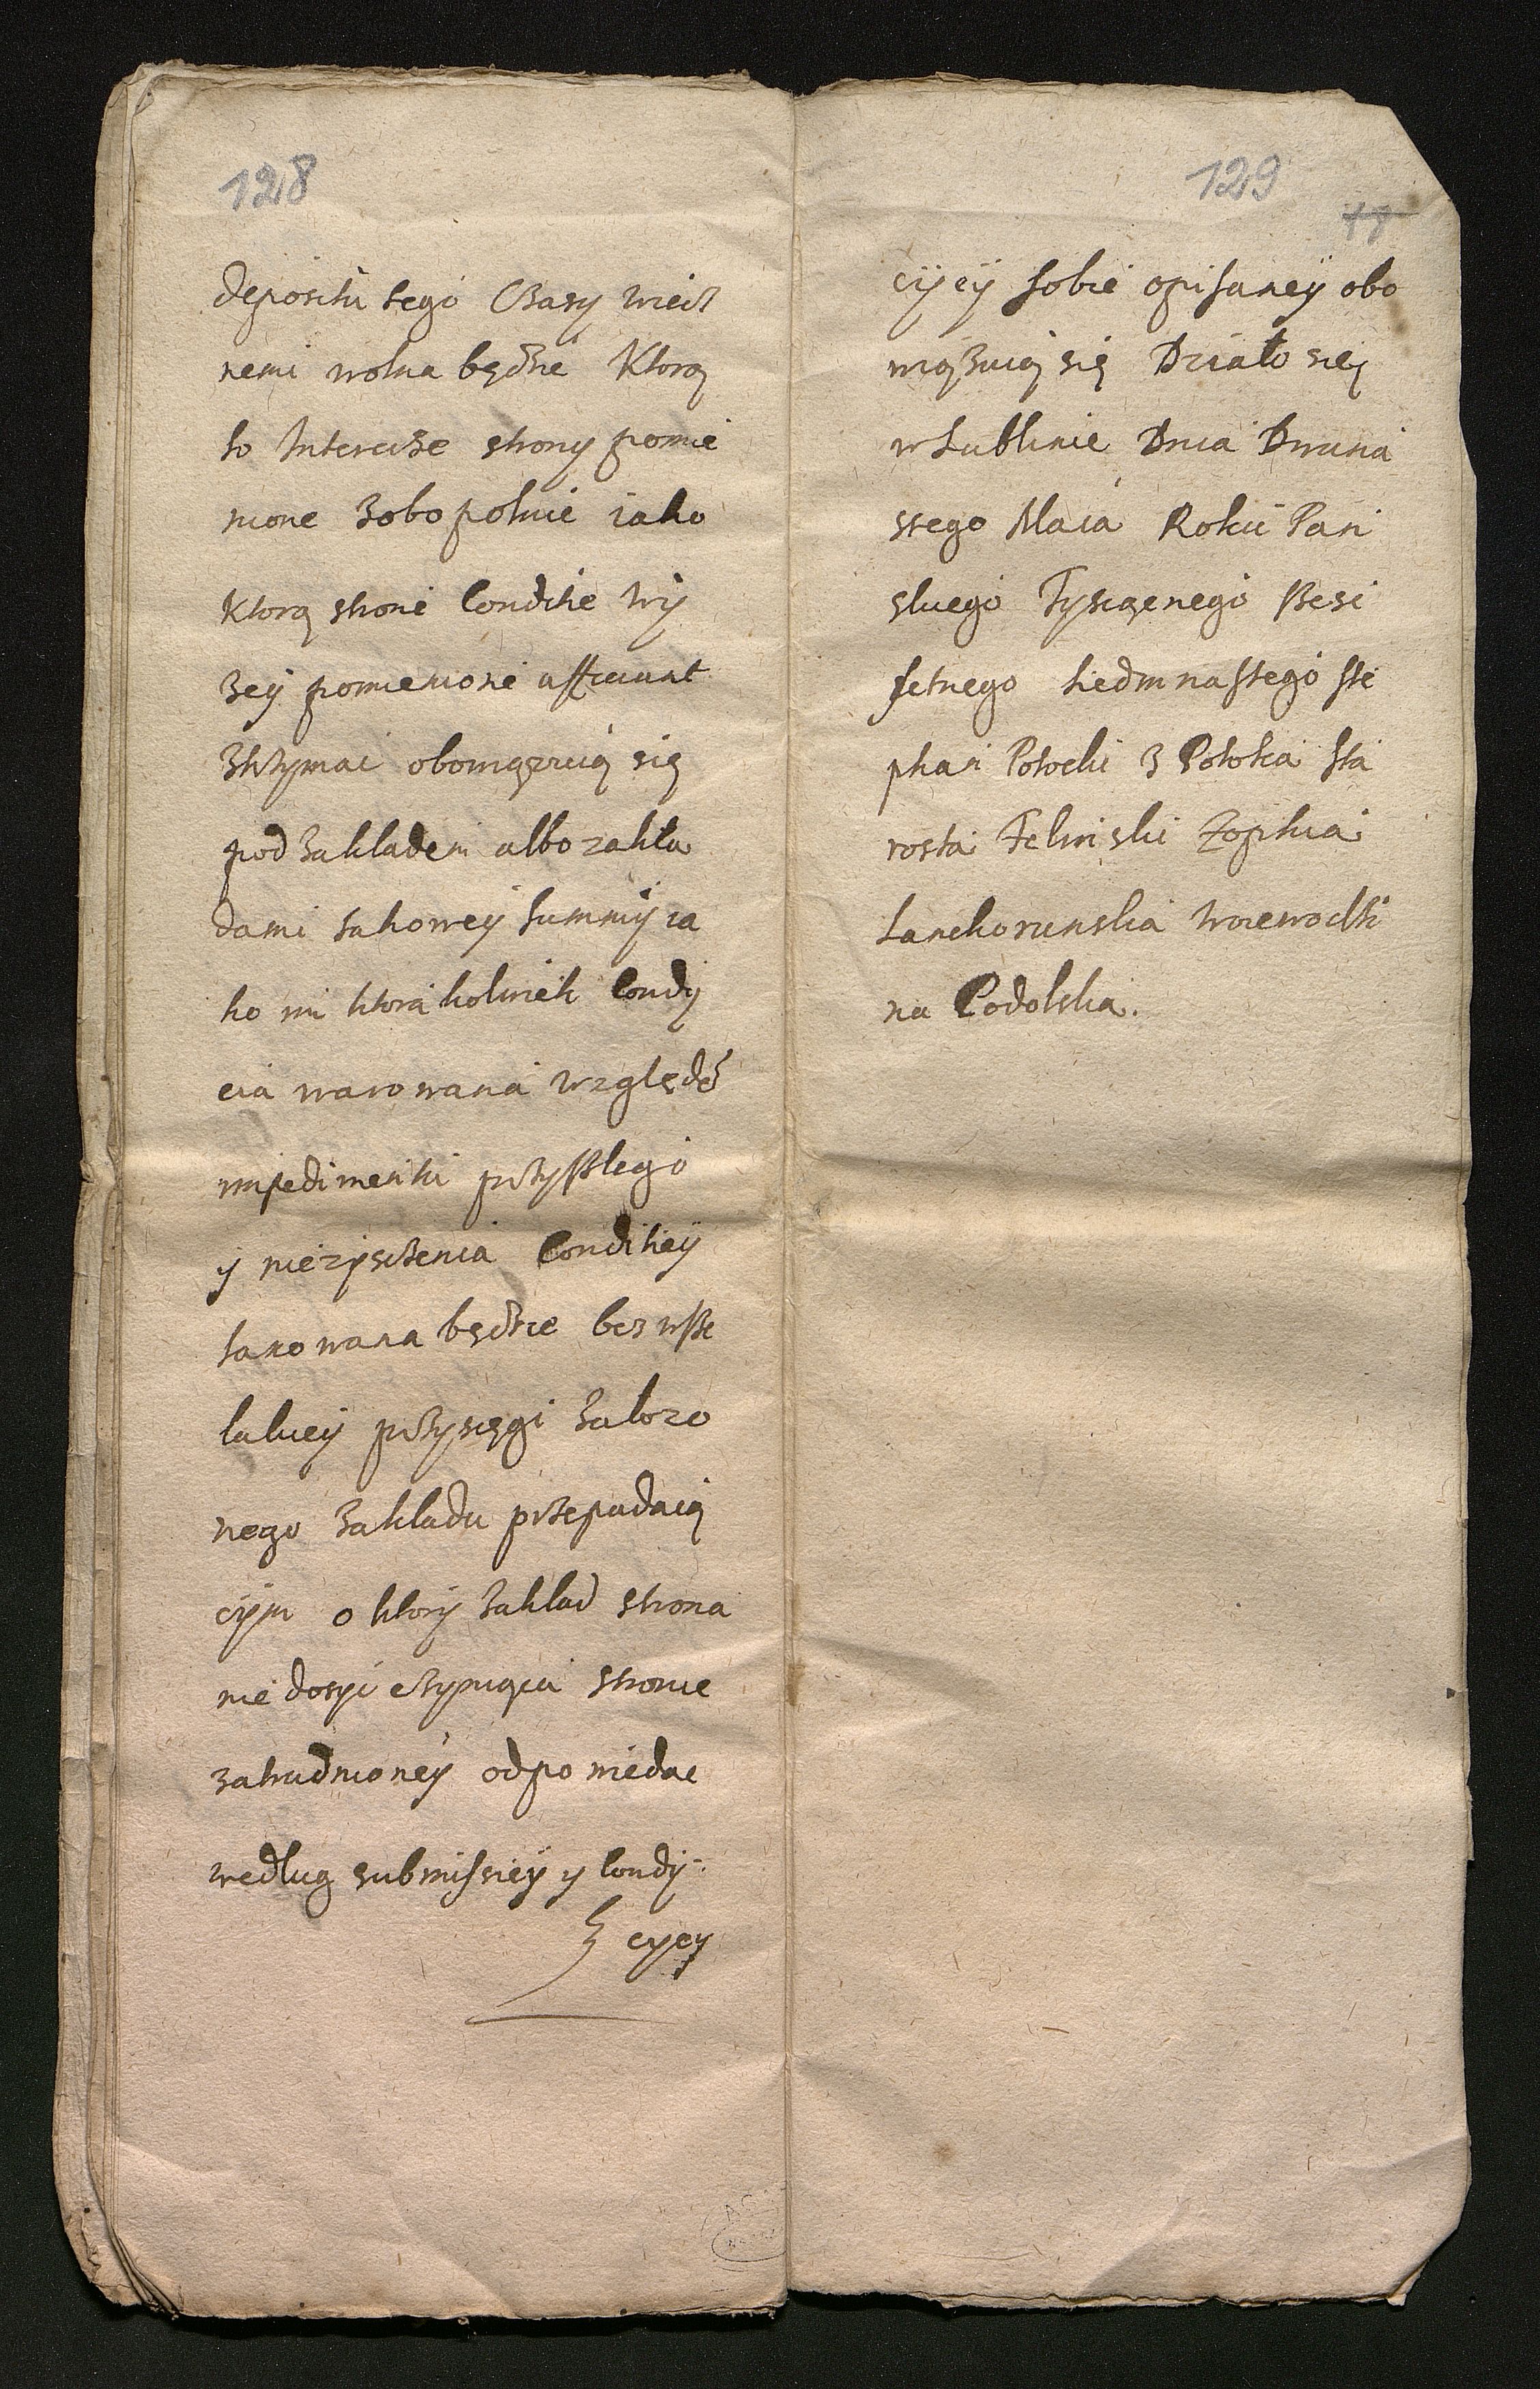 128
depositu tego Czasy wiecz
nemi wolna będzie Ktorą
to Intercize strony pomie
nione zobopolnie iako
Ktorą stronę Conditie wy
zey pomienione
ztrzymac obowięzuią się
pod zakładem albo zakła
dami takowey summy ia
ko mi ktorakolwiek Condy
cia warowana względē
impedimentu przyszłego
y niezysczenia Conditiey
taxowana będzie bez wsze
lakiey przysięgi załozo
nego zakładu przepadaią
cym o ktory zakład strona
nie dosyc czyniąca stronie
zatrudnioney odpowiedac
według submissiey y condy-
cycy
129
18
cyey sobie opisaney obo
wiązuią się Działo się
w Lublinie Dnia Dwuna
stego Maia Roku Pań
skiego Tysiącnego szesc
setnego siedmnastego Ste
phan Potocki z Potoka Sta
rosta Feliński Zophia
Lanckorunska Woiewodzi
na Podolska.